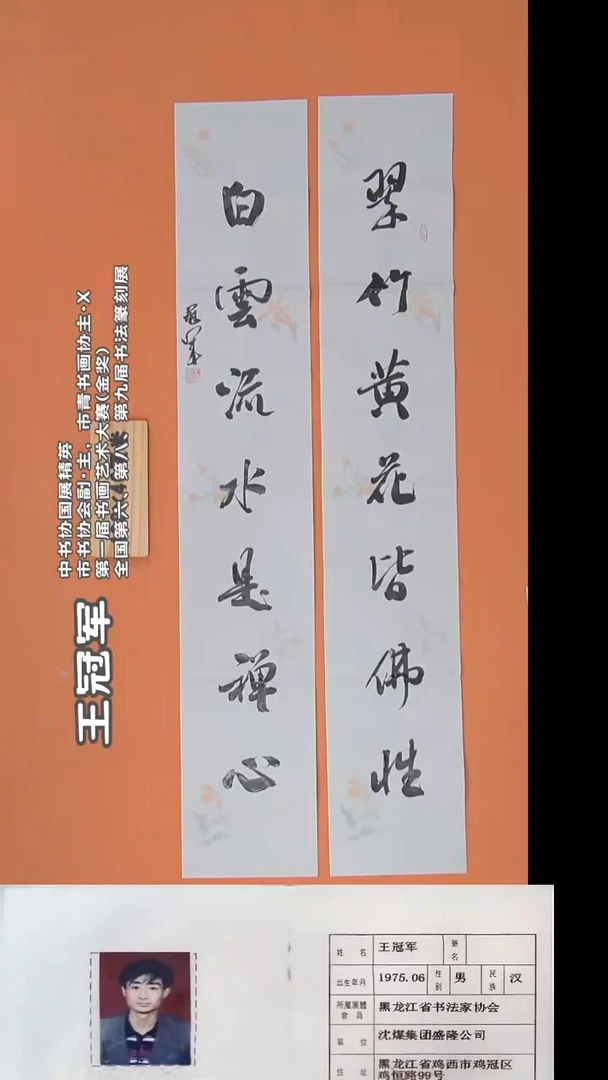 翠竹黄花皆佛性
白雲流水是禅心
冠军
中书协国展精英
市书协会副·主，市青书画协主·X
第一届书画艺术大赛(金奖)
全国第六、第八、第九届书法篆刻展
王冠军
姓名 王冠军 筆名
出生年月 1975.06 性别 男 民族 汉
所属團體會員 黑龙江省书法家协会
單位 沈煤集团盛隆公司
住址 黑龙江省鸡西市鸡冠区
鸡恒路99号